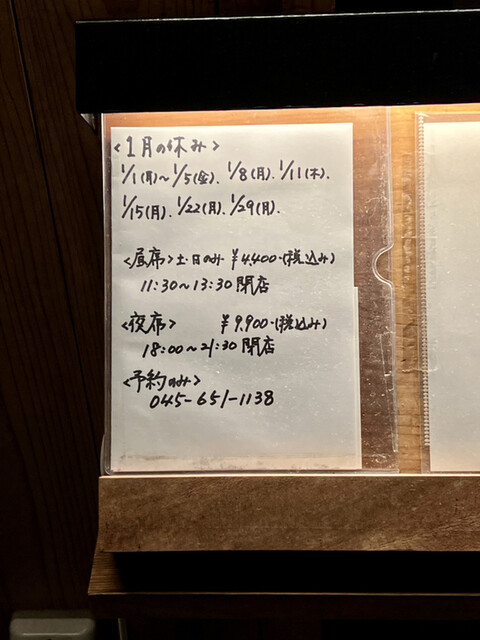 <1月の休み>
1/1(月)~1/5(金)、1/8(月)、1/11(木)、
1/15(月)、1/22(月)、1/29(月)、
<昼席>土・日のみ ¥4,400-(税込み)
11:30~13:30閉店
<夜席> ¥9,900-(税込み)
18:00~21:30閉店
<予約のみ>
045-651-1138